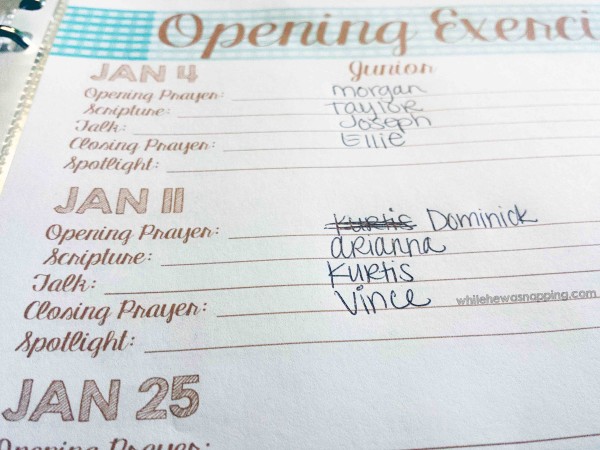 Opening Exerci
JAN 4 Junior
Opening Prayer: morgan
Scripture: Taylor
Talk: Joseph
Closing Prayer: Ellie
Spotlight:
JAN 11
Opening Prayer: Kurtis Dominick
Scripture: arianna
Talk: Kurtis
Closing Prayer: Vince
whilehewasnapping.com
Spotlight:
JAN 25
Opening Prayer: